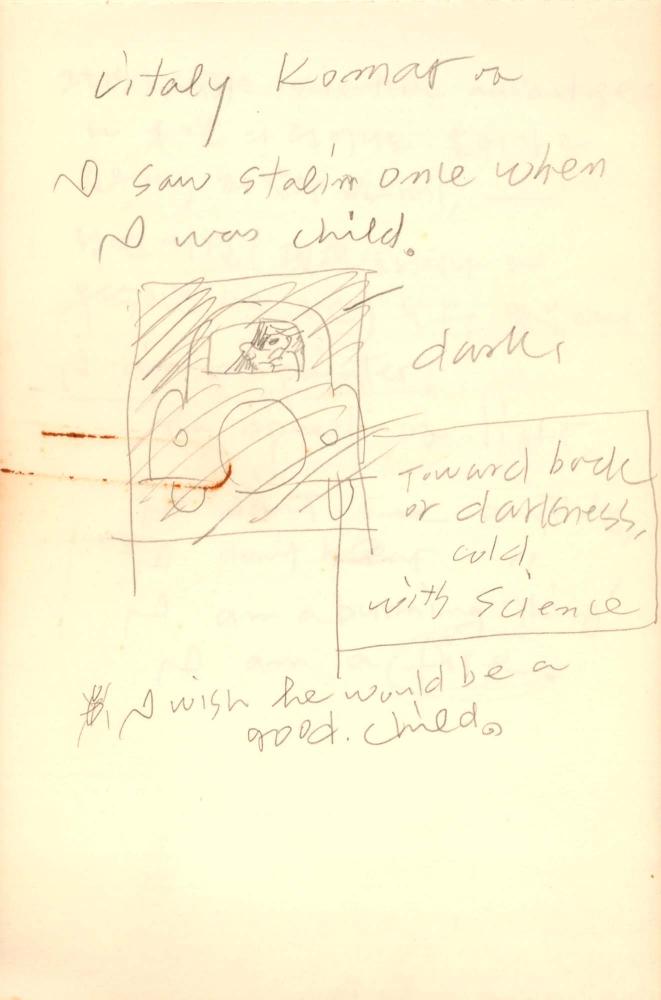 Vitaly Komar
I saw Stalin once when
I was child.
dark,
Toward back
or darkness,
cold
with Science
I wish he would be a
good. child.